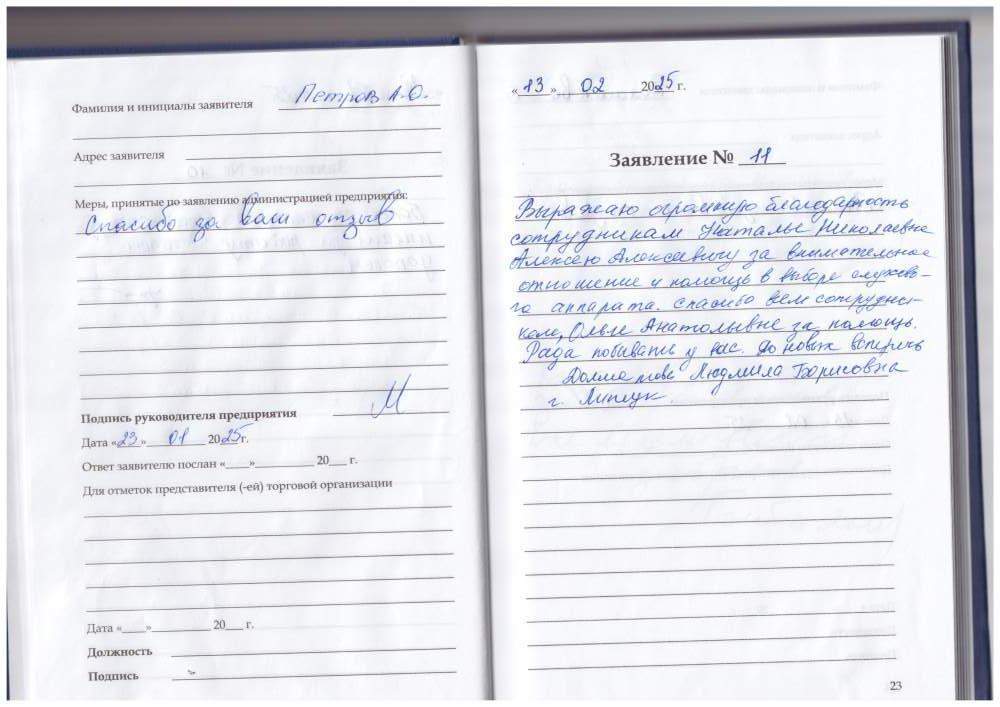 Фамилия и инициалы заявителя Петров А.О.
Адрес заявителя
Меры, принятые по заявлению администрацией предприятия:
Спасибо за ваш отзыв
Подпись руководителя предприятия
Дата «23» 01 2025г.
Ответ заявителю послан «___»__________ 20___ г.
Для отметок представителя (-ей) торговой организации
Дата «___»__________ 20___ г.
Должность
Подпись
«13» 02 2025 г.
Заявление № 11
Выражаю огромную благодарность
сотрудникам Наталье Николаевне
Алексею Алексеевичу за внимательное
отношение и помощь в выборе слухово-
го аппарата. Спасибо всем сотрудни-
кам, Ольге Анатольевне за помощь.
Рада побывать у вас. До новых встреч
Долматова Людмила Борисовна
г. Липецк.
23